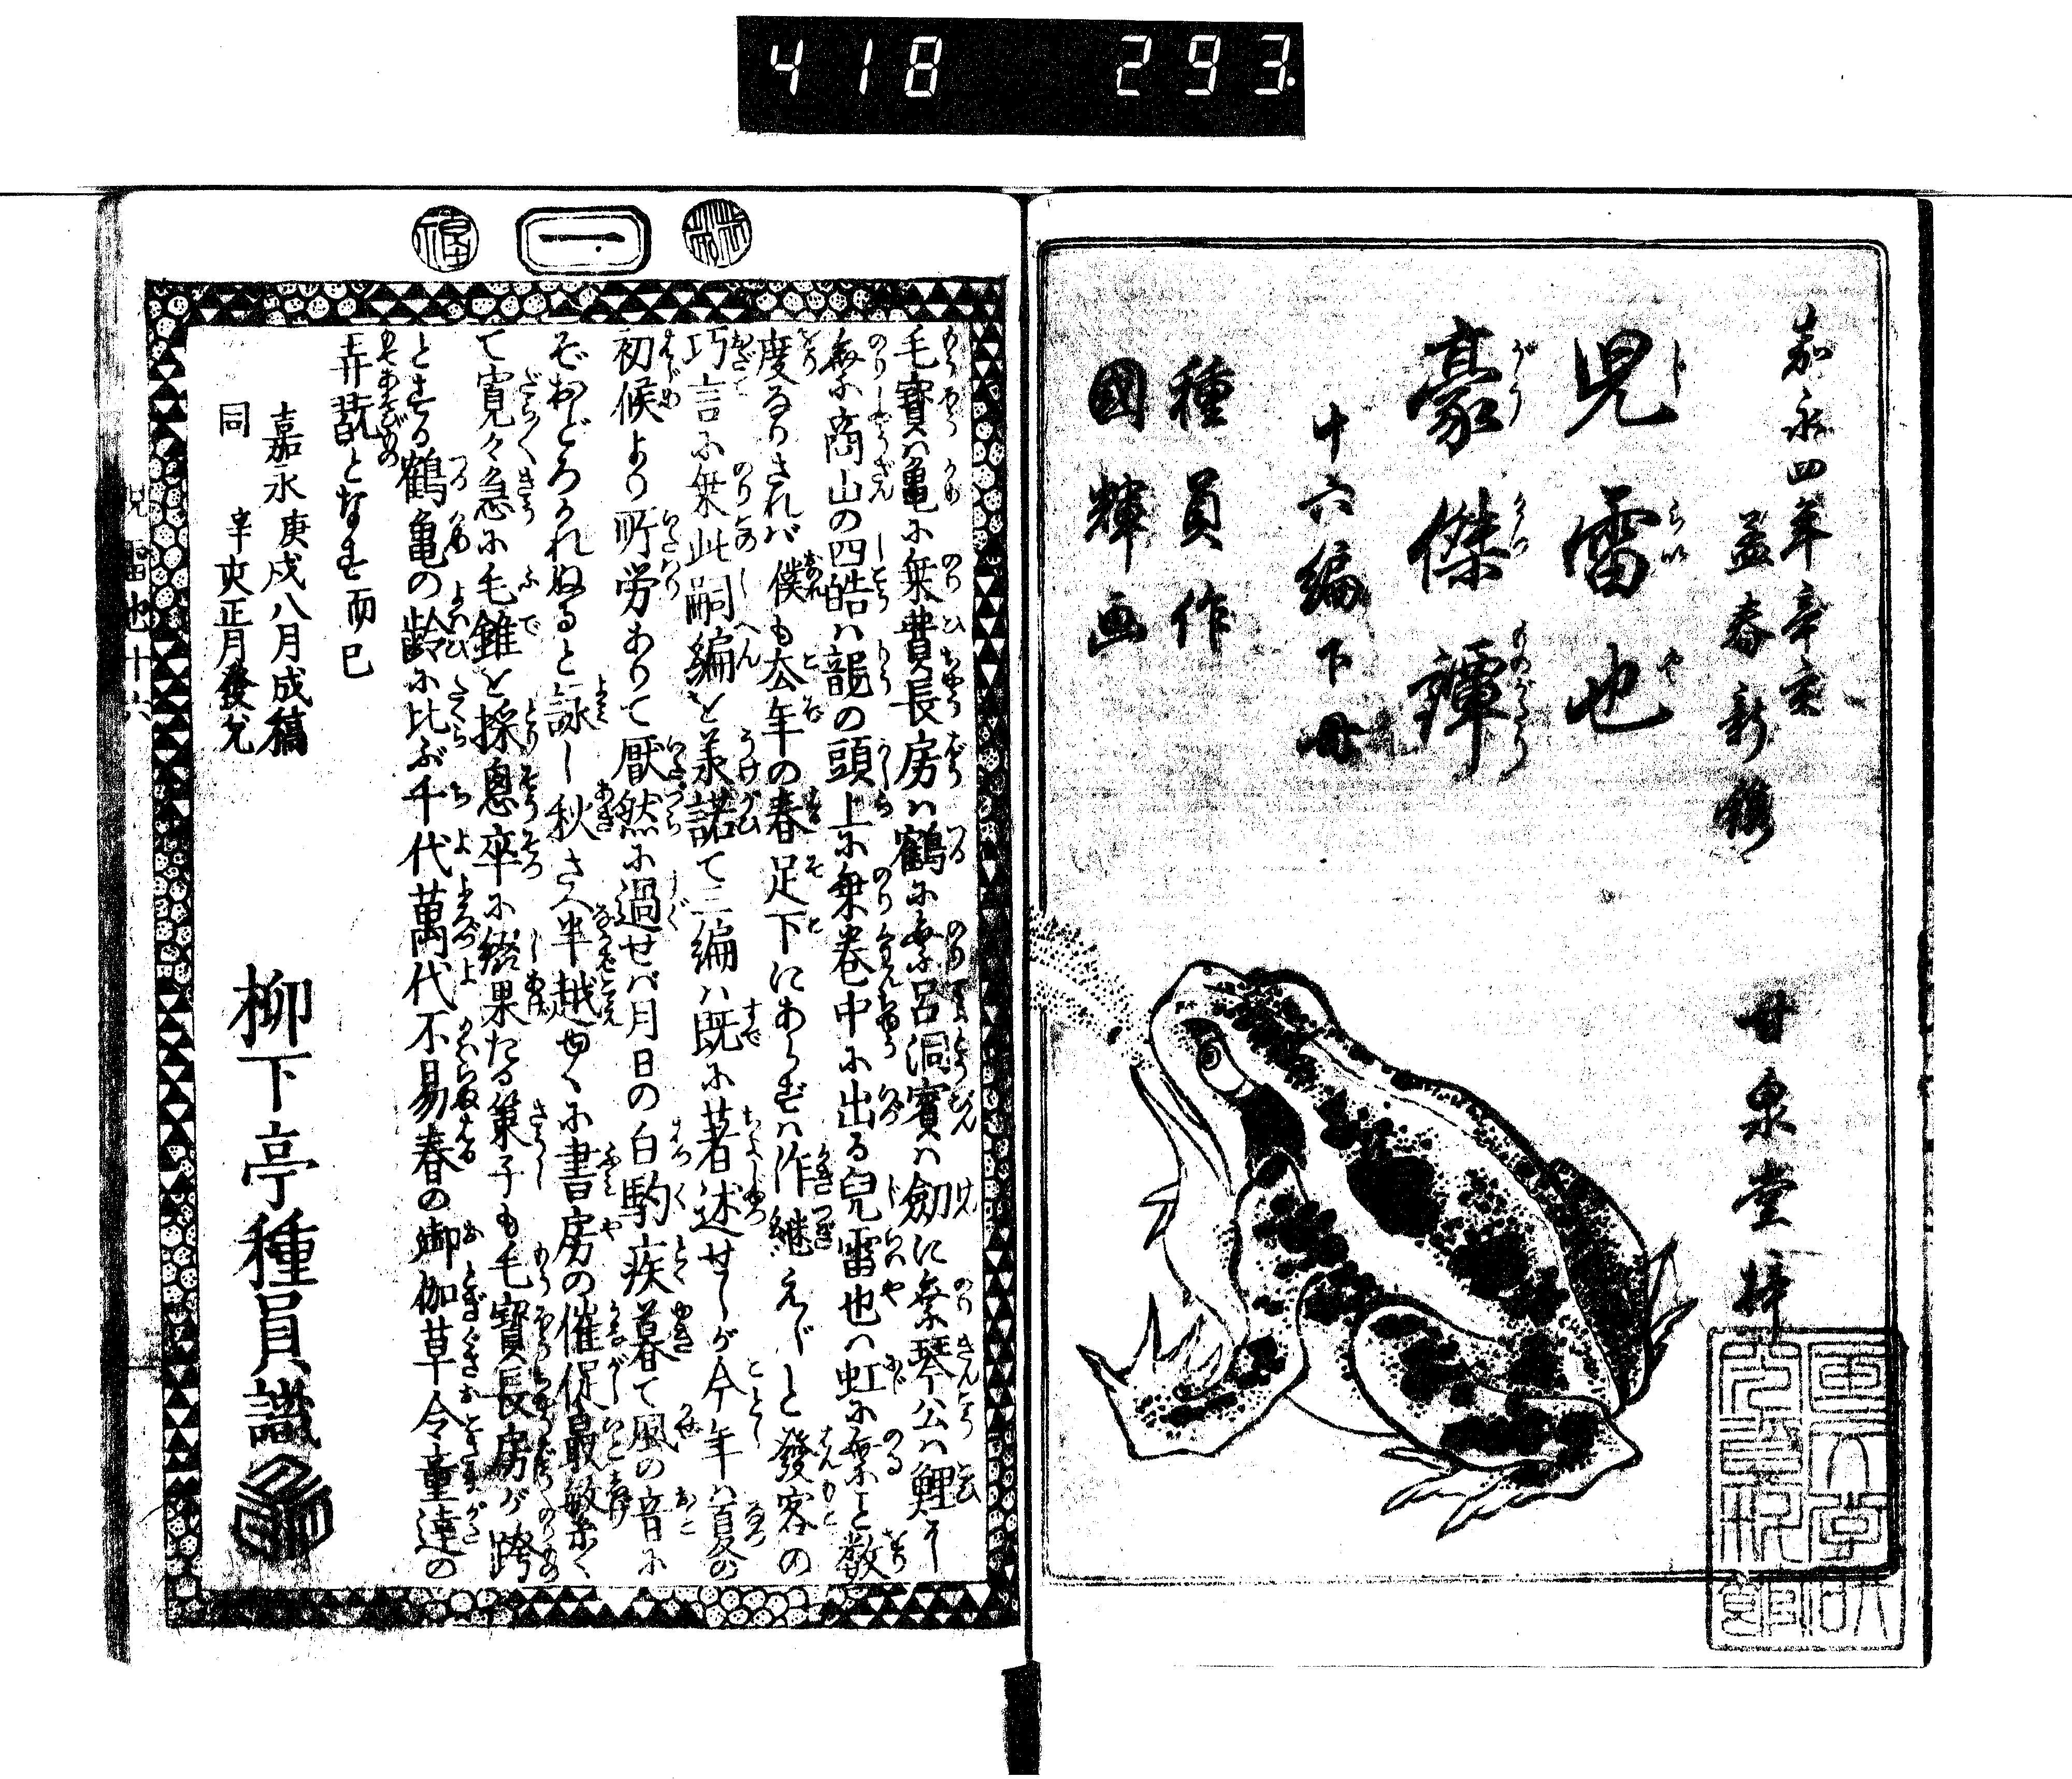 418 293
嘉永四年辛亥
孟春新鐫
児雷也
豪傑譚
十六編下冊
種員作
國輝画
甘泉堂梓
一
毛寳ハ亀に乗費長房ハ鶴に乗呂洞賓ハ劔に乗琴公ハ鯉に
乗商山の四皓ハ龍の頭上に乗巻中に出る兒雷也ハ虹に乗と数
度なりされバ僕も去年の春足下にあらずハ作継えじと發客の
巧言に乗此嗣編を承諾て三編ハ既に著述せしが今年ハ夏の
初候より所労ありて厭然に過せバ月日の白駒疾暮て風の音に
ぞおどろかれぬると詠し秋さへ半越やゝに書房の催促最敏糸く
て寛々急に毛錐を採怱卒に綴果たる策子も毛寳長房が跨
とする鶴亀の齢に比ぶ千代萬代不易春の御伽草令童達の
弄翫となす而已
嘉永庚戌八月成稿
同辛亥正月發兌
柳下亭種員識
児雷也十六